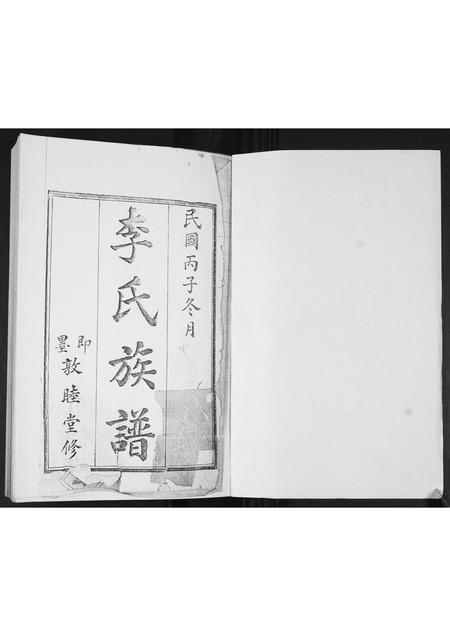 民國丙子冬月
李氏族譜
即墨敦睦堂修